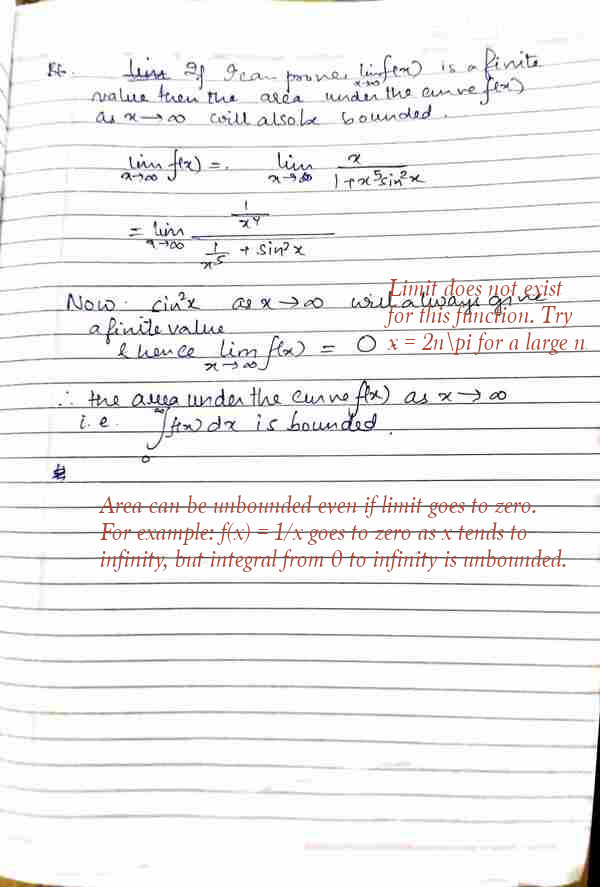 If I can prove lim x→∞ f(x) is a finite
value then the area under the curve f(x)
as x → ∞ will also be bounded.
lim x→∞ f(x) = . lim x→∞ x / 1+x⁵sin²x
= lim x→∞ (1/x⁴) / (1/x⁵ + sin²x)
Now sin²x as x → ∞ will always give
a finite value
& hence lim x→∞ f(x) = 0
Limit does not exist
for this function. Try
x = 2n\pi for a large n
∴ the area under the curve f(x) as x → ∞
i.e. ∫₀^∞ f(x) dx is bounded.
Area can be unbounded even if limit goes to zero.
For example: f(x) = 1/x goes to zero as x tends to
infinity, but integral from 0 to infinity is unbounded.